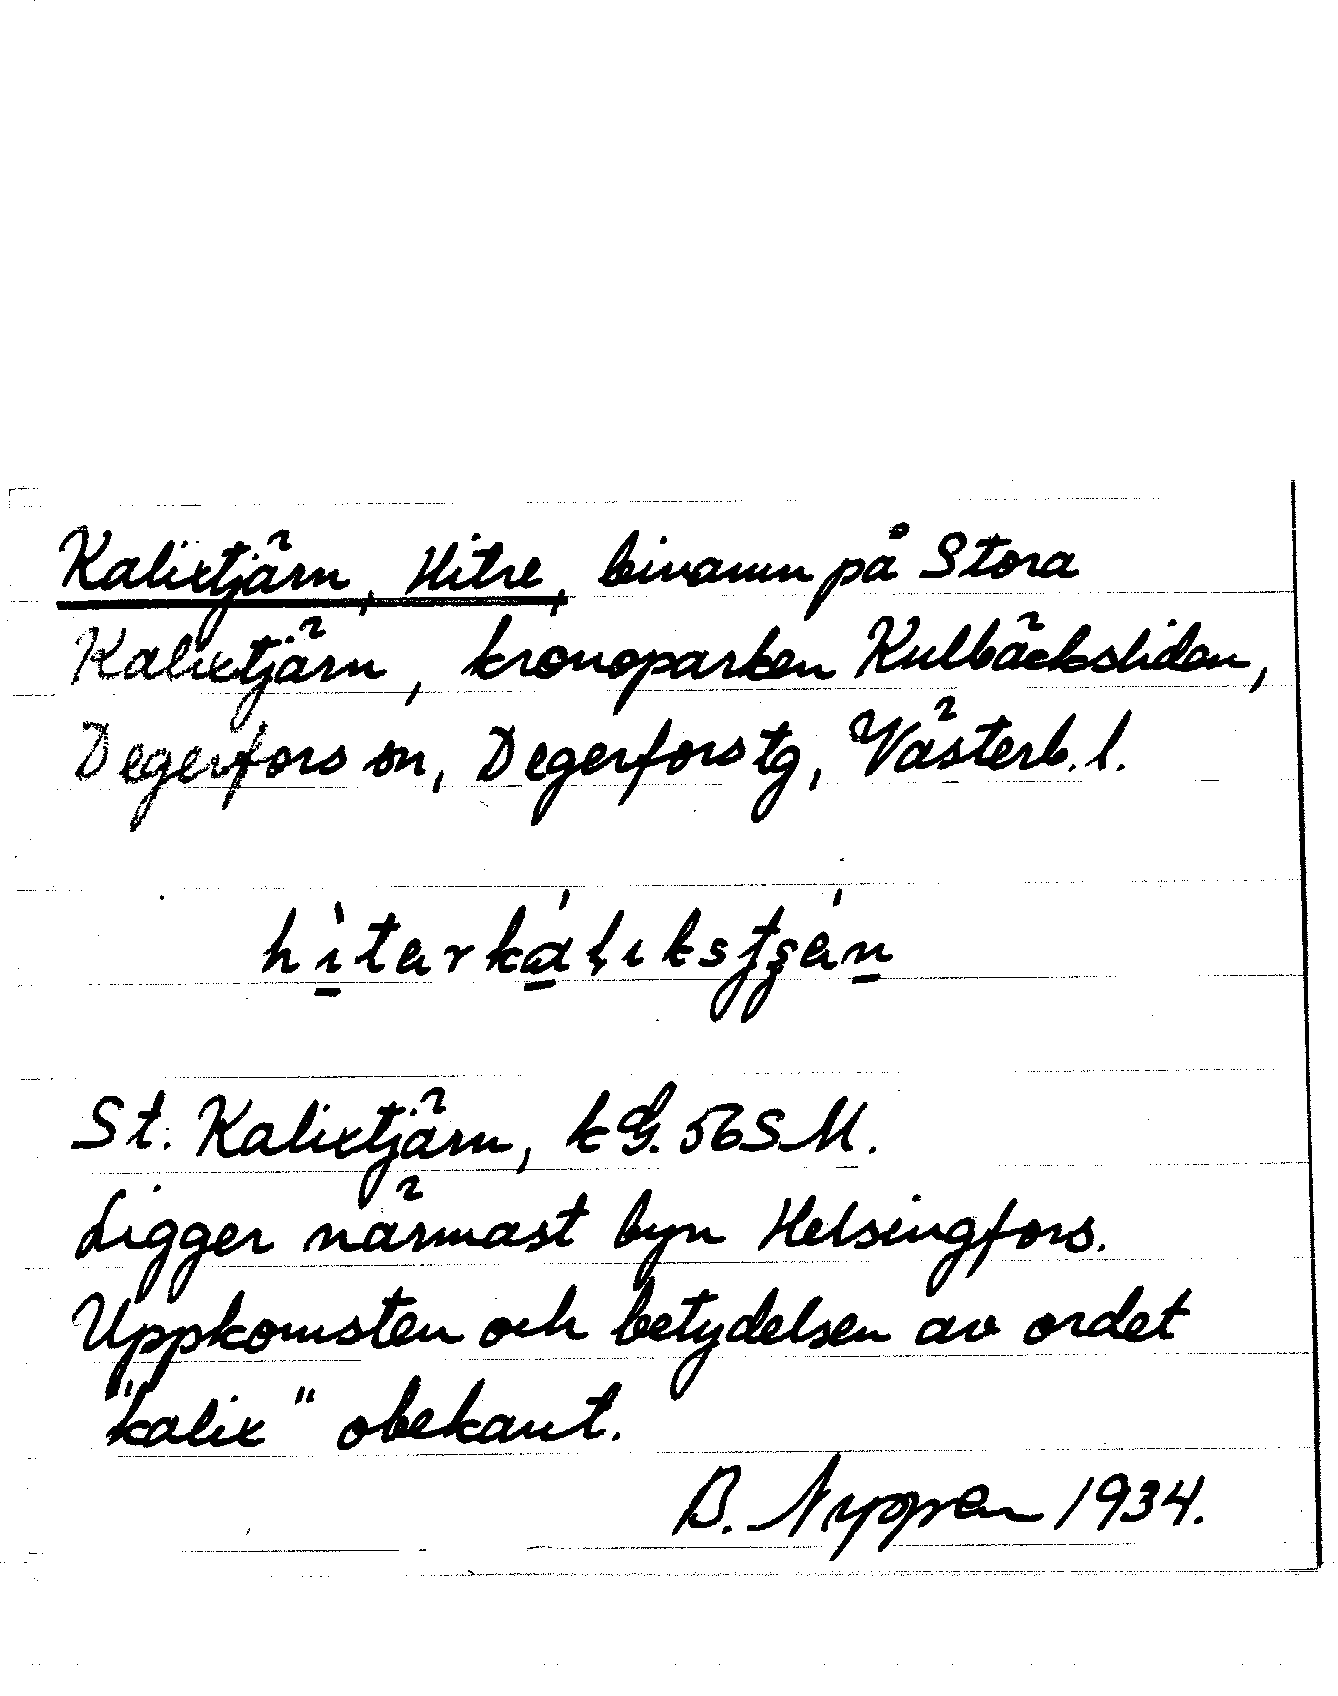 Kalixtjärn, Hitre, binamn på Stora
Kalixtjärn, kronoparken Kulbäcksliden,
Degerfors sn, Degerfors tg, Västerb. l.
hìtarkálıkstʃán
St. Kalixtjärn, kG. 56SM.
Ligger närmast byn Helsingfors.
Uppkomsten och betydelsen av ordet
"kalix" obekant.
B. Nyppen 1934.